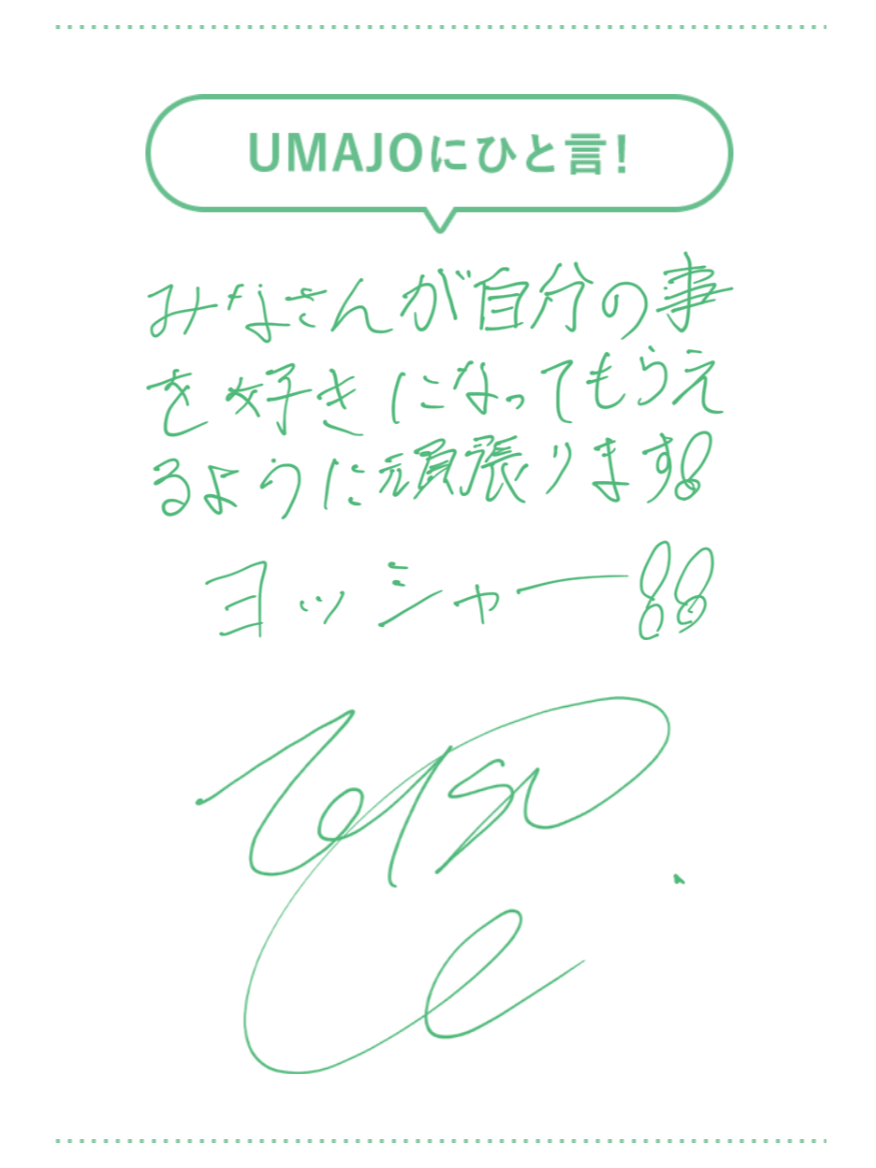 UMAJOにひと言!
みなさんが自分の事
を好きになってもらえ
るように頑張ります!
ヨッシャー!!